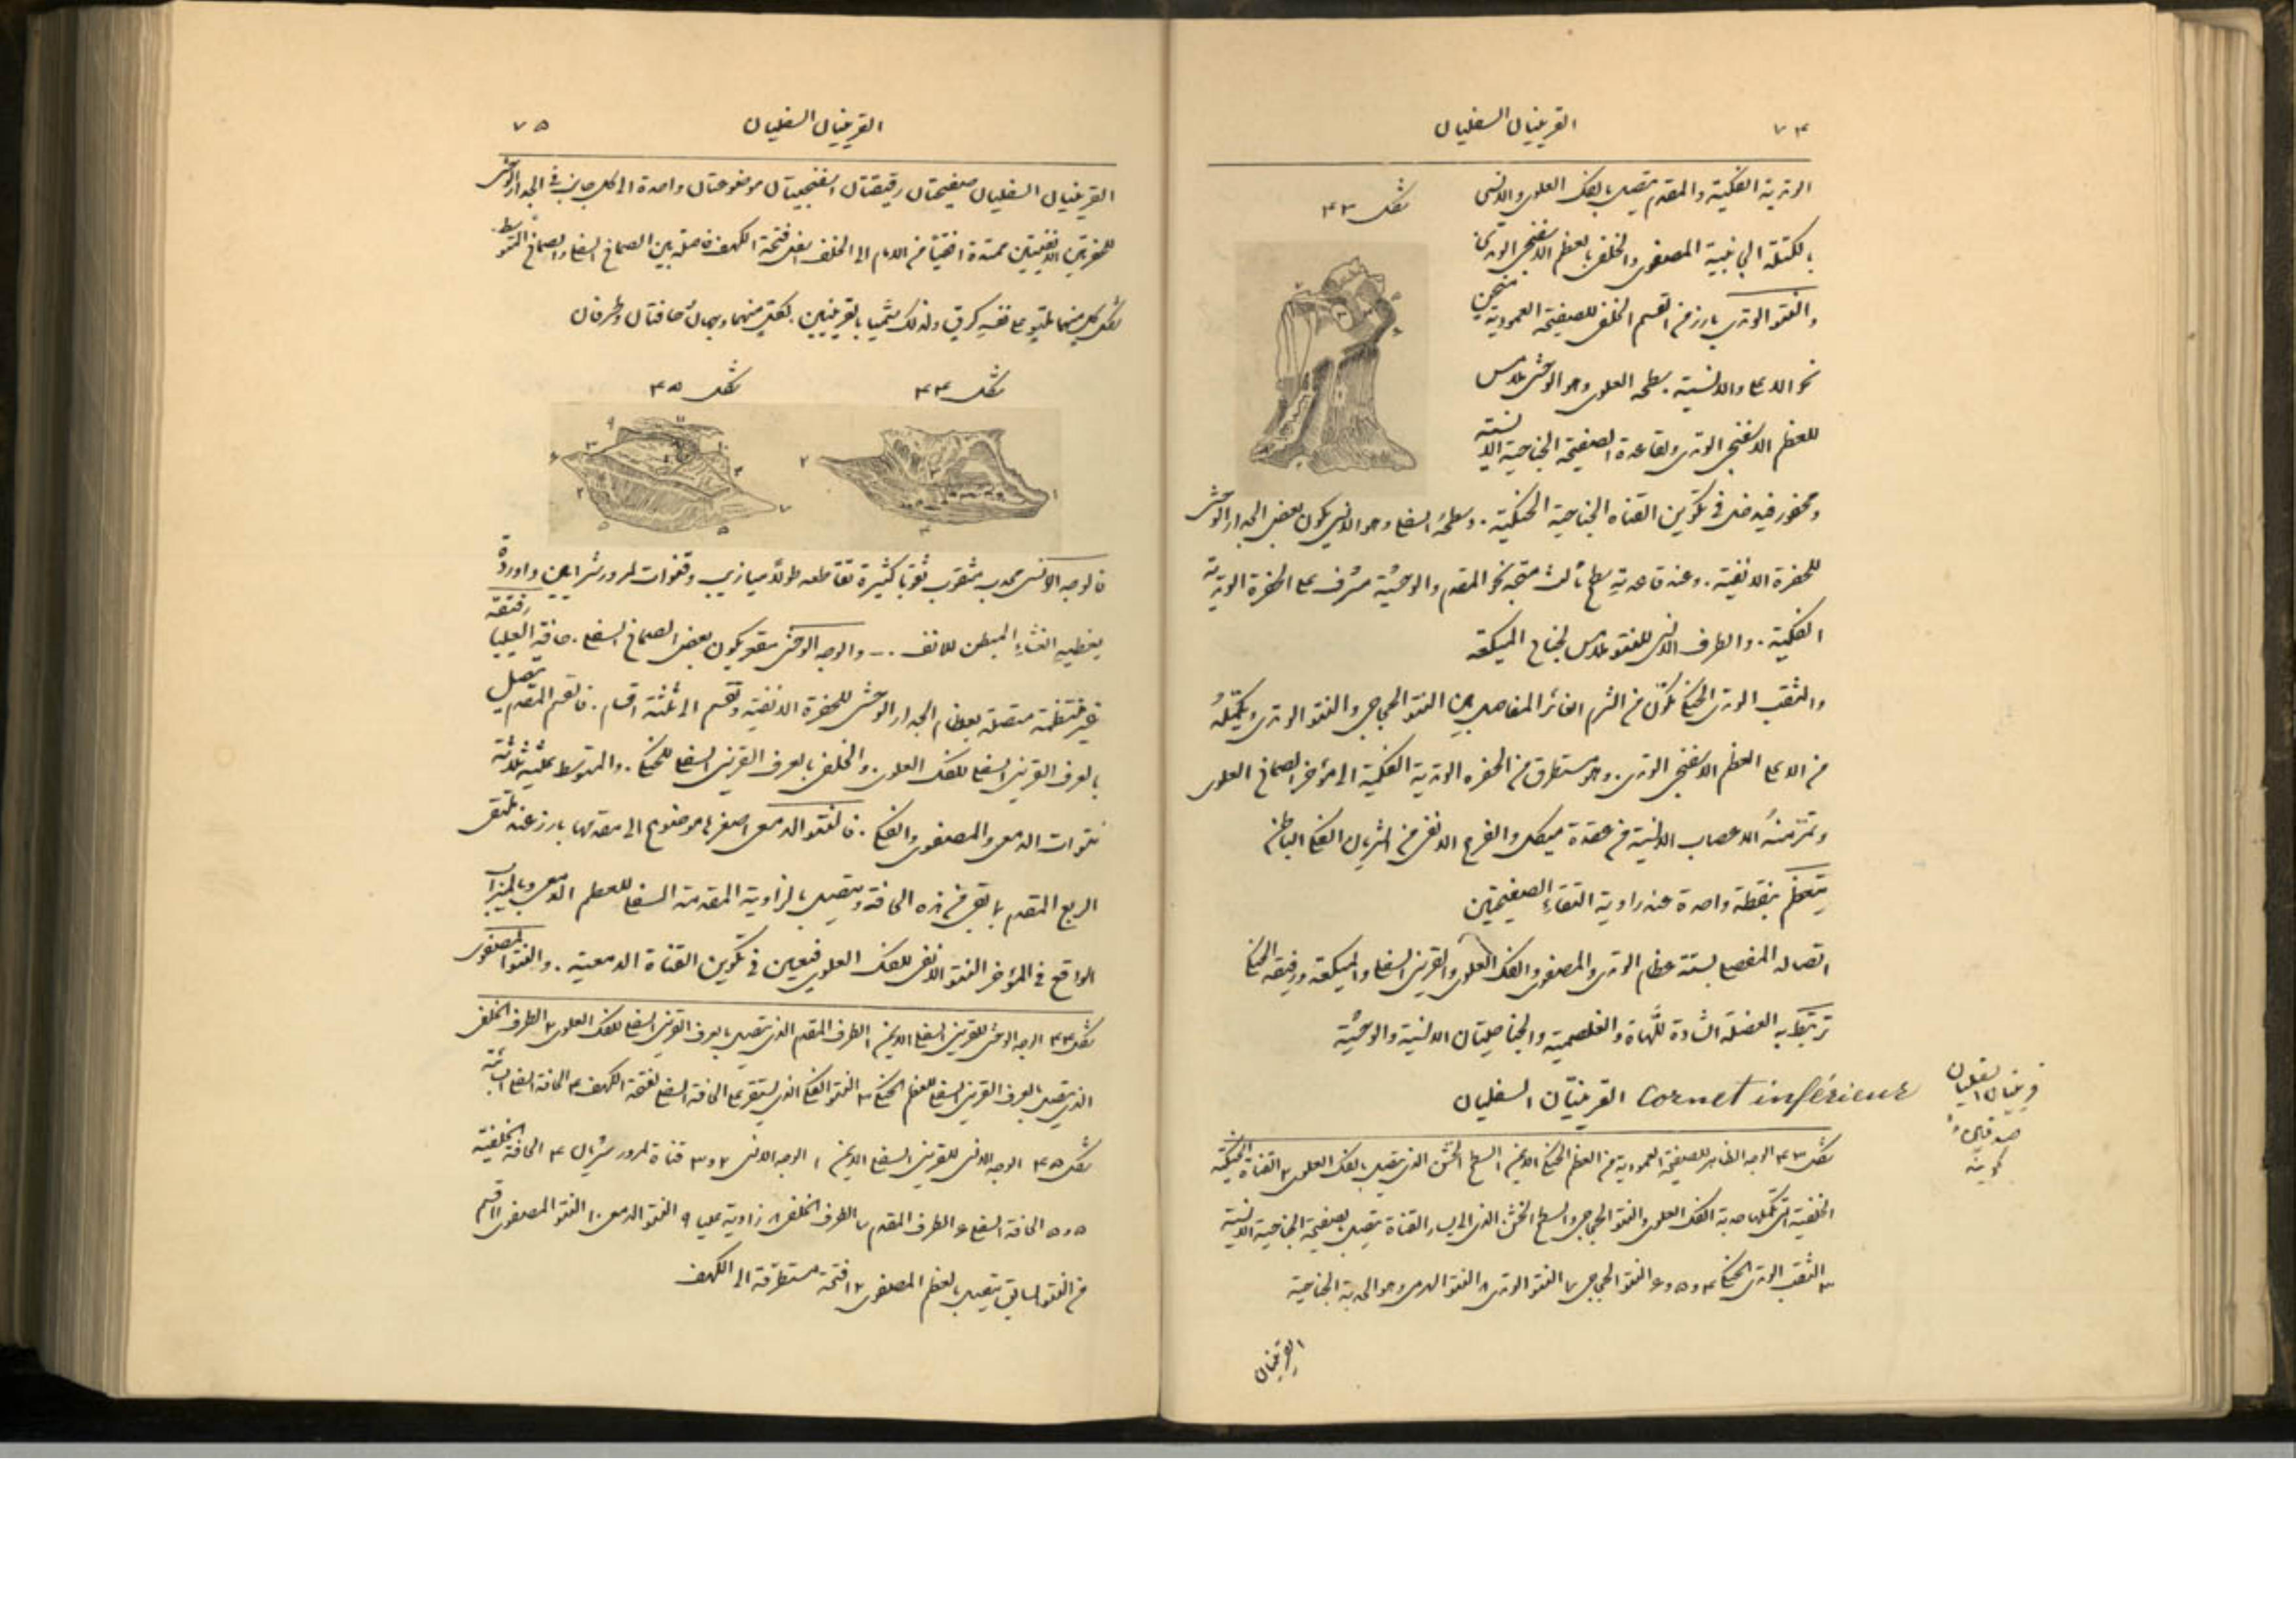 ٧٤
القرينيان السفليان
شكل ٤٣
الوتدية الفكية والمقدم يتصل بالفك العلوي والانسي
بالكتلة الجانبية المصفوي والخلفي بالعظم الاسفنجي الوتدي
والنتو الوتدي بارز من القسم الخلفي للصفيحة العمودية منحن
نحو الاعلى والانسية. سطحه العلوي وهو الوحشي ملامس
للعظم الاسفنجي الوتدي ولقاعدة الصفيحة الجناحية الانسية
ومحفور فيه في تكوين القناه الجناحية الحنكية. وسطحه السفلي وهو الانسي يكون بعض الجدار الوحشي
للحفرة الانفية. وعند قاعدته سطح ثالث متجه نحو المقدم والوحشية مشرف على الحفرة الوتدية
الفكية. والطرف الانسي للنتو ملامس لجناح الميكعة
والثقب الوتدي الحنكي تكون من الثرم الغائر الفاصل بين النتو الحجاجي والنتو الوتدي ويكمله
من الاعلى العظم الاسفنجي الوتدي. وهو مستطرق من الحفره الوتدية الفكية الى مؤخر الصماخ العلوي
وتمر منه الاعصاب الانسية من عقدة ميكل والفرع الانفي من الشريان الفكي الباطن
يتعظم بنقطة واحدة عند زاوية التقاء الصفيحتين
اتصاله المفصلي بستة عظام الوتدي والمصفوي والفك العلوي والقرينى السفلي والميكعة ورفيقه الحنكي
ترتبط به العضلة الشادة للهاة والغلصمية والجناحيتان الانسية والوحشية
القرينيان السفليان Cornet inférieur
قرينيان السفليان
شكل ٤٣ الوجه الظاهر للصفيحة العمودية من العظم الحنكي الايمن ١ السطح الخشن الذي يتصل بالفك العلوي ٢ القناة الحنكية
الخلفية التي تكملها حدبة الفك العلوي والنتو الحجاجي والسطح الخشن الذي الى يسار القناة يتصل بصفيحة الجناحية الانسية
٣ الثقب الوتدي الحنكي ٤ و٥ و٦ النتو الحجاجي ٧ النتو الوتدي ٨ النتو الهرمي وهو الحدبة الجناحية
القرينيان
القرينيان السفليان
٧٥
القرينيان السفليان صفيحتان رقيقتان اسفنجيتان موضوعتان واحدة الى كل جانب في الجدار الوحشي
للحفرتين الانفيتين ممتدة افقيا من الامام الى الخلف اسفل فتحة الكهف فاصلة بين الصماخ السفلي والصماخ المتوسط.
شكل كل منهما ملتو على نفسه كرق ولذلك سميا بالقرينيين. لكل منهما وجهان حافتان وطرفان
شكل ٤٤
شكل ٤٥
فالوجه الانسي محدب مثقوب ثقوبا كثيرة تقاطعه طولا ميازيب وقنوات لمرور شرايين واوردة
يغطيه الغشاء المبطن للانف . — والوجه الوحشي مقعر يكون بعض الصماخ السفلي. حافته العليا رقيقة
غير منتظمة متصلة بعظام الجدار الوحشي للحفرة الانفية وتقسم الى ثلثة اقسام. فالقسم المقدم يتصل
بالعرف القرينى السفلي للفك العلوي. والخلفي بالعرف القرينى السفلي للحنكي. والمتوسط عليه ثلاثة
نتوات الدمعي والمصفوي والفكي. فالنتو الدمعي اصغرها موضوع الى مقدمها بارز عند ملتقى
الربع المقدم بما بقي من هذه الحافة ويتصل بالزاوية المقدمة السفلى للعظم الدمعي وبالميزاب
الواقع في المؤخر النتو الانفي للفك العلوي فيعين في تكوين القناة الدمعية. والنتو المصفوي
شكل ٤٤ الوجه الوحشي للقرينى السفلي الايمن ١ الطرف المقدم الذي يتصل بالعرف القرينى السفلي للفك العلوي ٢ الطرف الخلفي
الذي يتصل بالعرف القرينى السفلي للعظم الحنكي ٣ النتو الفكي الذي يستقر على الحافة السفلى لفتحة الكهف ٤ الحافة السفلى السائبة
شكل ٤٥ الوجه الانسي للقرينى السفلي الايمن ١ الوجه الانسي ٢ و٣ قناة لمرور شريان ٤ الحافة الخلفية
٥ و٥ الحافة السفلى ٦ الطرف المقدم ٧ الطرف الخلفي ٨ زاوية عليا ٩ النتو الدمعي ١٠ النتو المصفوي ١١ قسم
من النتو السابق يتصل بالعظم المصفوي ١٢ فتحة مستطرقة الى الكهف